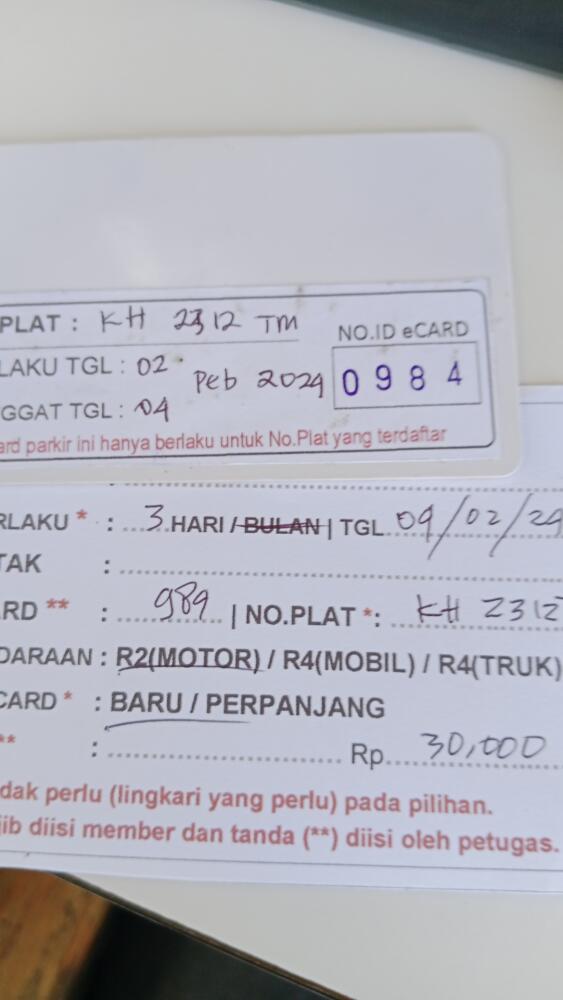 PLAT : KH 2312 TM
NO.ID eCARD
LAKU TGL : 02
Peb 2024
0984
GGAT TGL : 04
ard parkir ini hanya berlaku untuk No.Plat yang terdaftar
RLAKU * : 3 HARI / BULAN | TGL 04/02/24
TAK :
ARD ** : 984 | NO.PLAT *: KH 2312
DARAAN : R2(MOTOR) / R4(MOBIL) / R4(TRUK)
CARD * : BARU / PERPANJANG
** : Rp. 30,000
dak perlu (lingkari yang perlu) pada pilihan.
jib diisi member dan tanda (**) diisi oleh petugas.